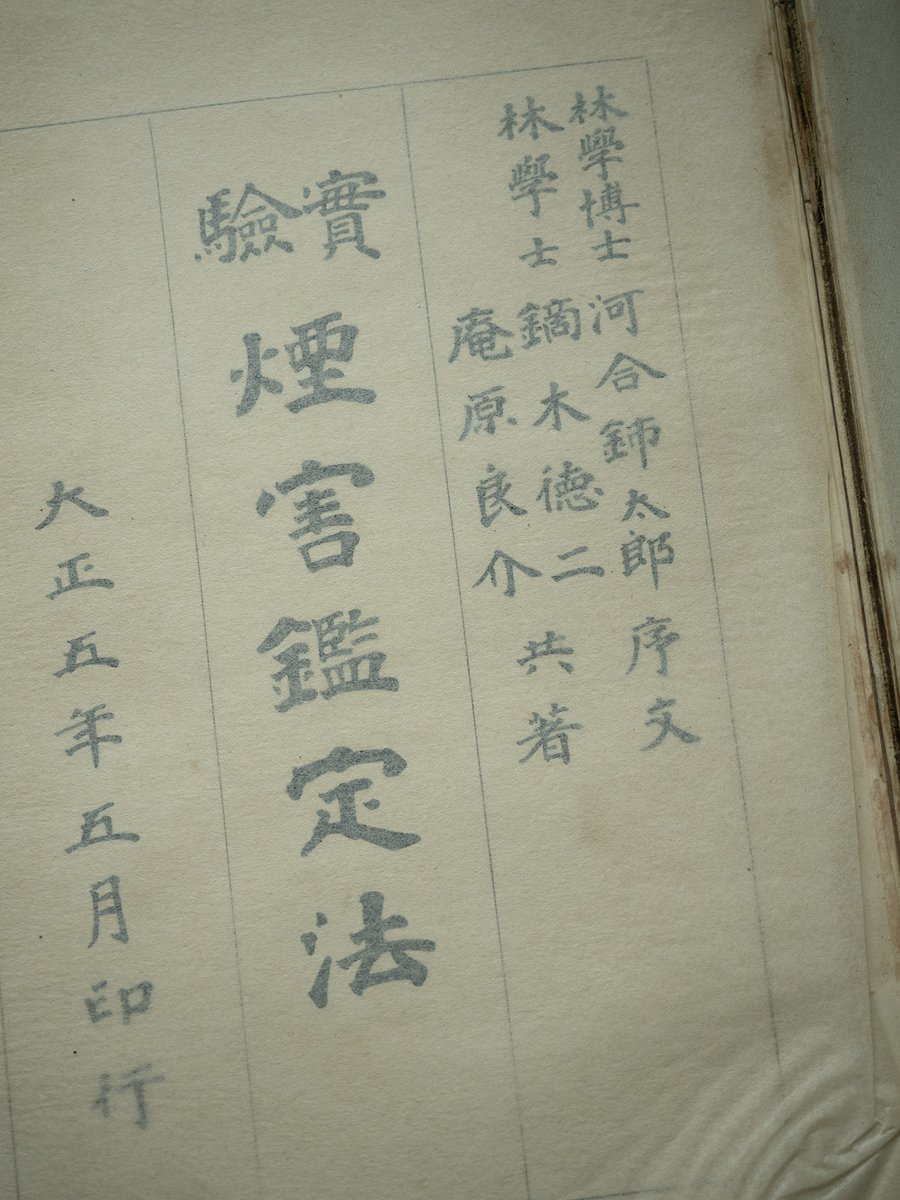 林學博士 河合鈰太郎 序文
林學士 鏑木徳二 共著
庵原良介
實驗 煙害鑑定法
大正五年五月印行